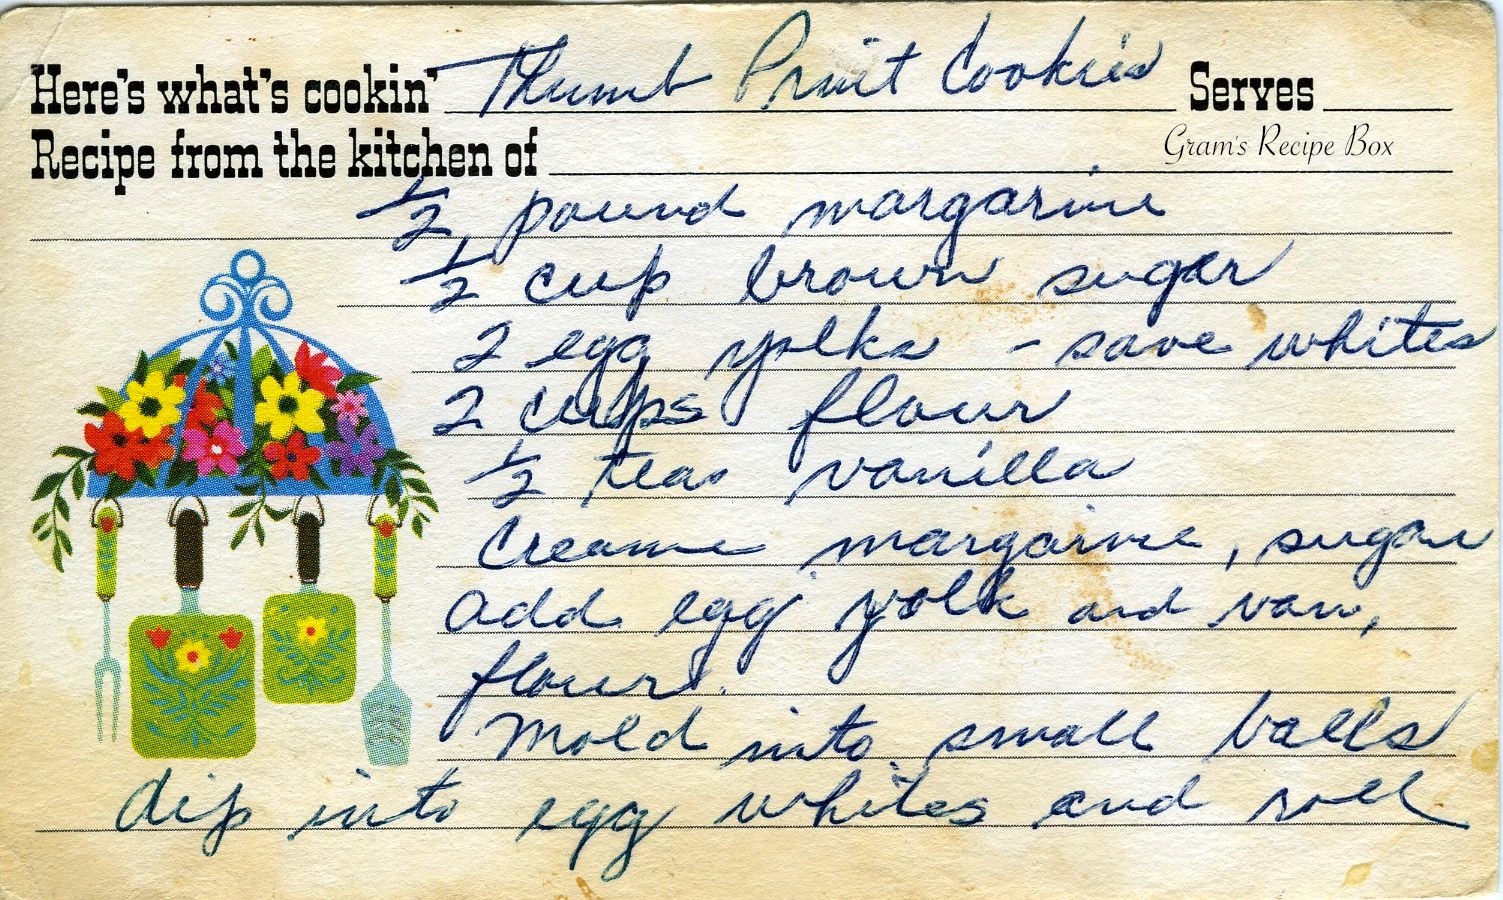 Here's what's cookin' Thumb Pruit Cookies Serves
Recipe from the kitchen of
Gram's Recipe Box
1/2 pound margarine
1/2 cup brown sugar
2 egg yolks - save whites
2 cups flour
1/2 teas vanilla
Creame margarine, sugar
add egg yolk and van,
flour.
Mold into small balls
dip into egg whites and roll